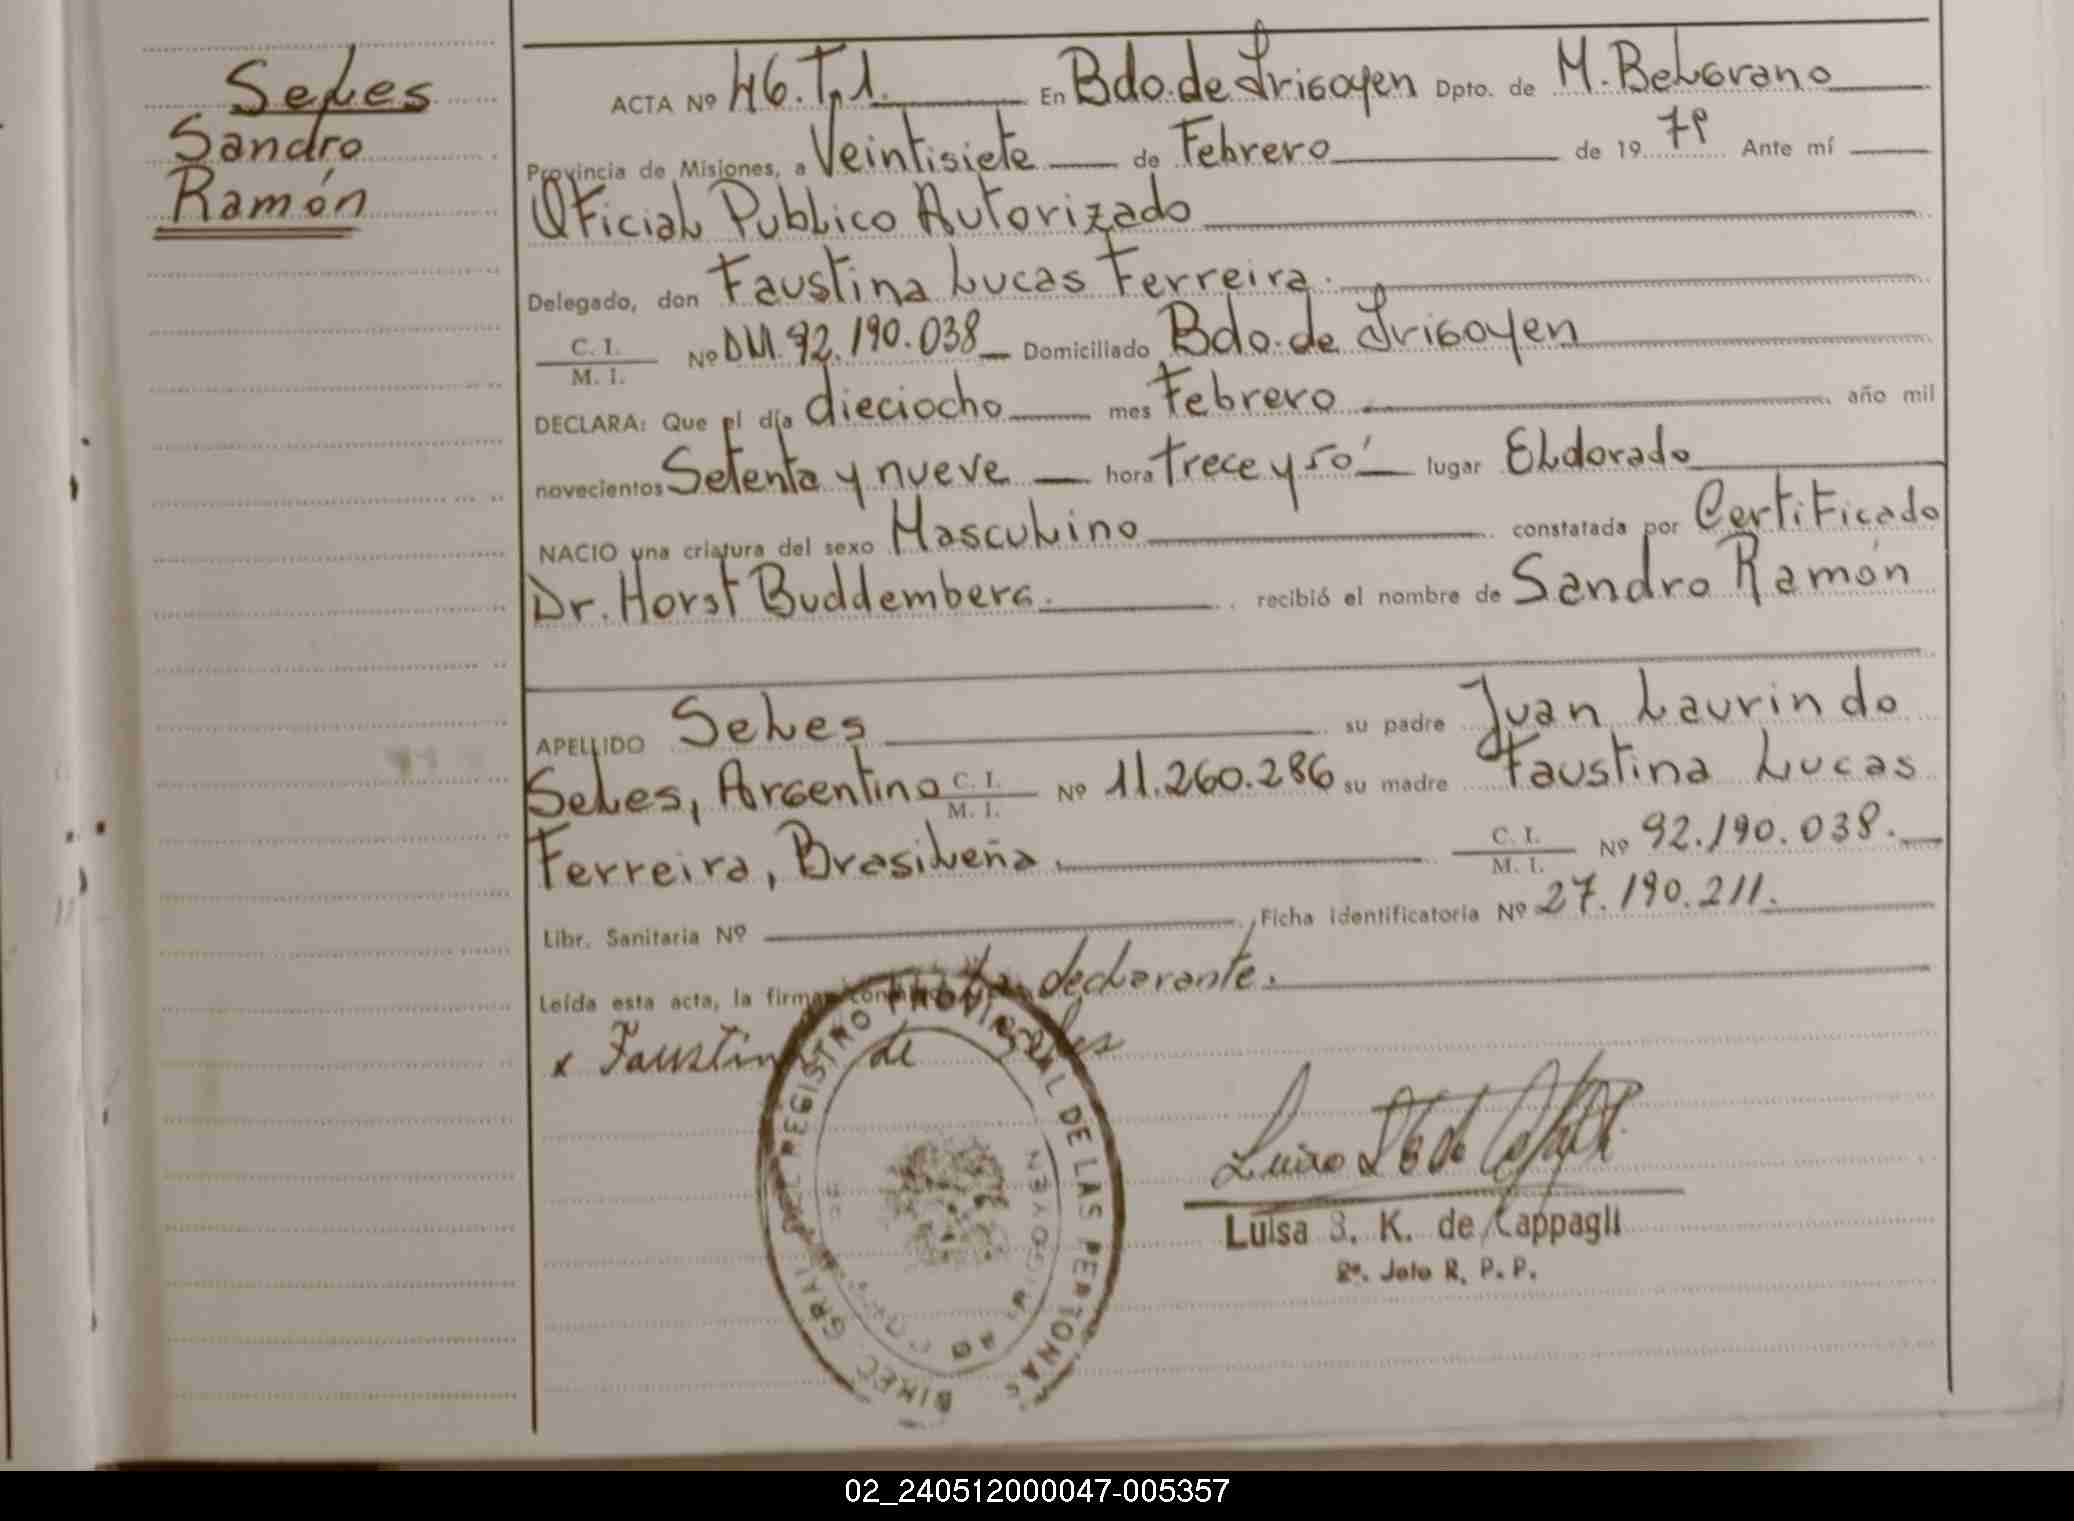 Seles
Sandro
Ramón
ACTA Nº 46.T.1. En Bdo. de Irigoyen Dpto. de M. Belgrano
Provincia de Misiones, a Veintisiete de Febrero de 19 79 Ante mí
Oficial Publico Autorizado
Delegado, don Faustina Lucas Ferreira.
C. I.
M. I.
Nº DNI. 92.190.038 Domiciliado Bdo. de Irigoyen
DECLARA: Que el día dieciocho mes Febrero año mil
novecientos Setenta y nueve hora trece y 50' lugar Eldorado
NACIO una criatura del sexo Masculino constatada por Certificado
Dr. Horst Buddemberg. recibió el nombre de Sandro Ramón
APELLIDO Seles su padre Juan Laurindo
Seles, Argentino C. I. M. I. Nº 11.260.286 su madre Faustina Lucas
Ferreira, Brasileña C. I. M. I. Nº 92.190.038.
Libr. Sanitaria Nº Ficha identificatoria Nº 27.190.211.
Leída esta acta, la firman declarante.
x Faustina de
DIREC. GRAL. DEL REGISTRO PROVINCIAL DE LAS PERSONAS
Luisa B. K. de Cappagli
2ª. Jefe R. P. P.
02_240512000047-005357